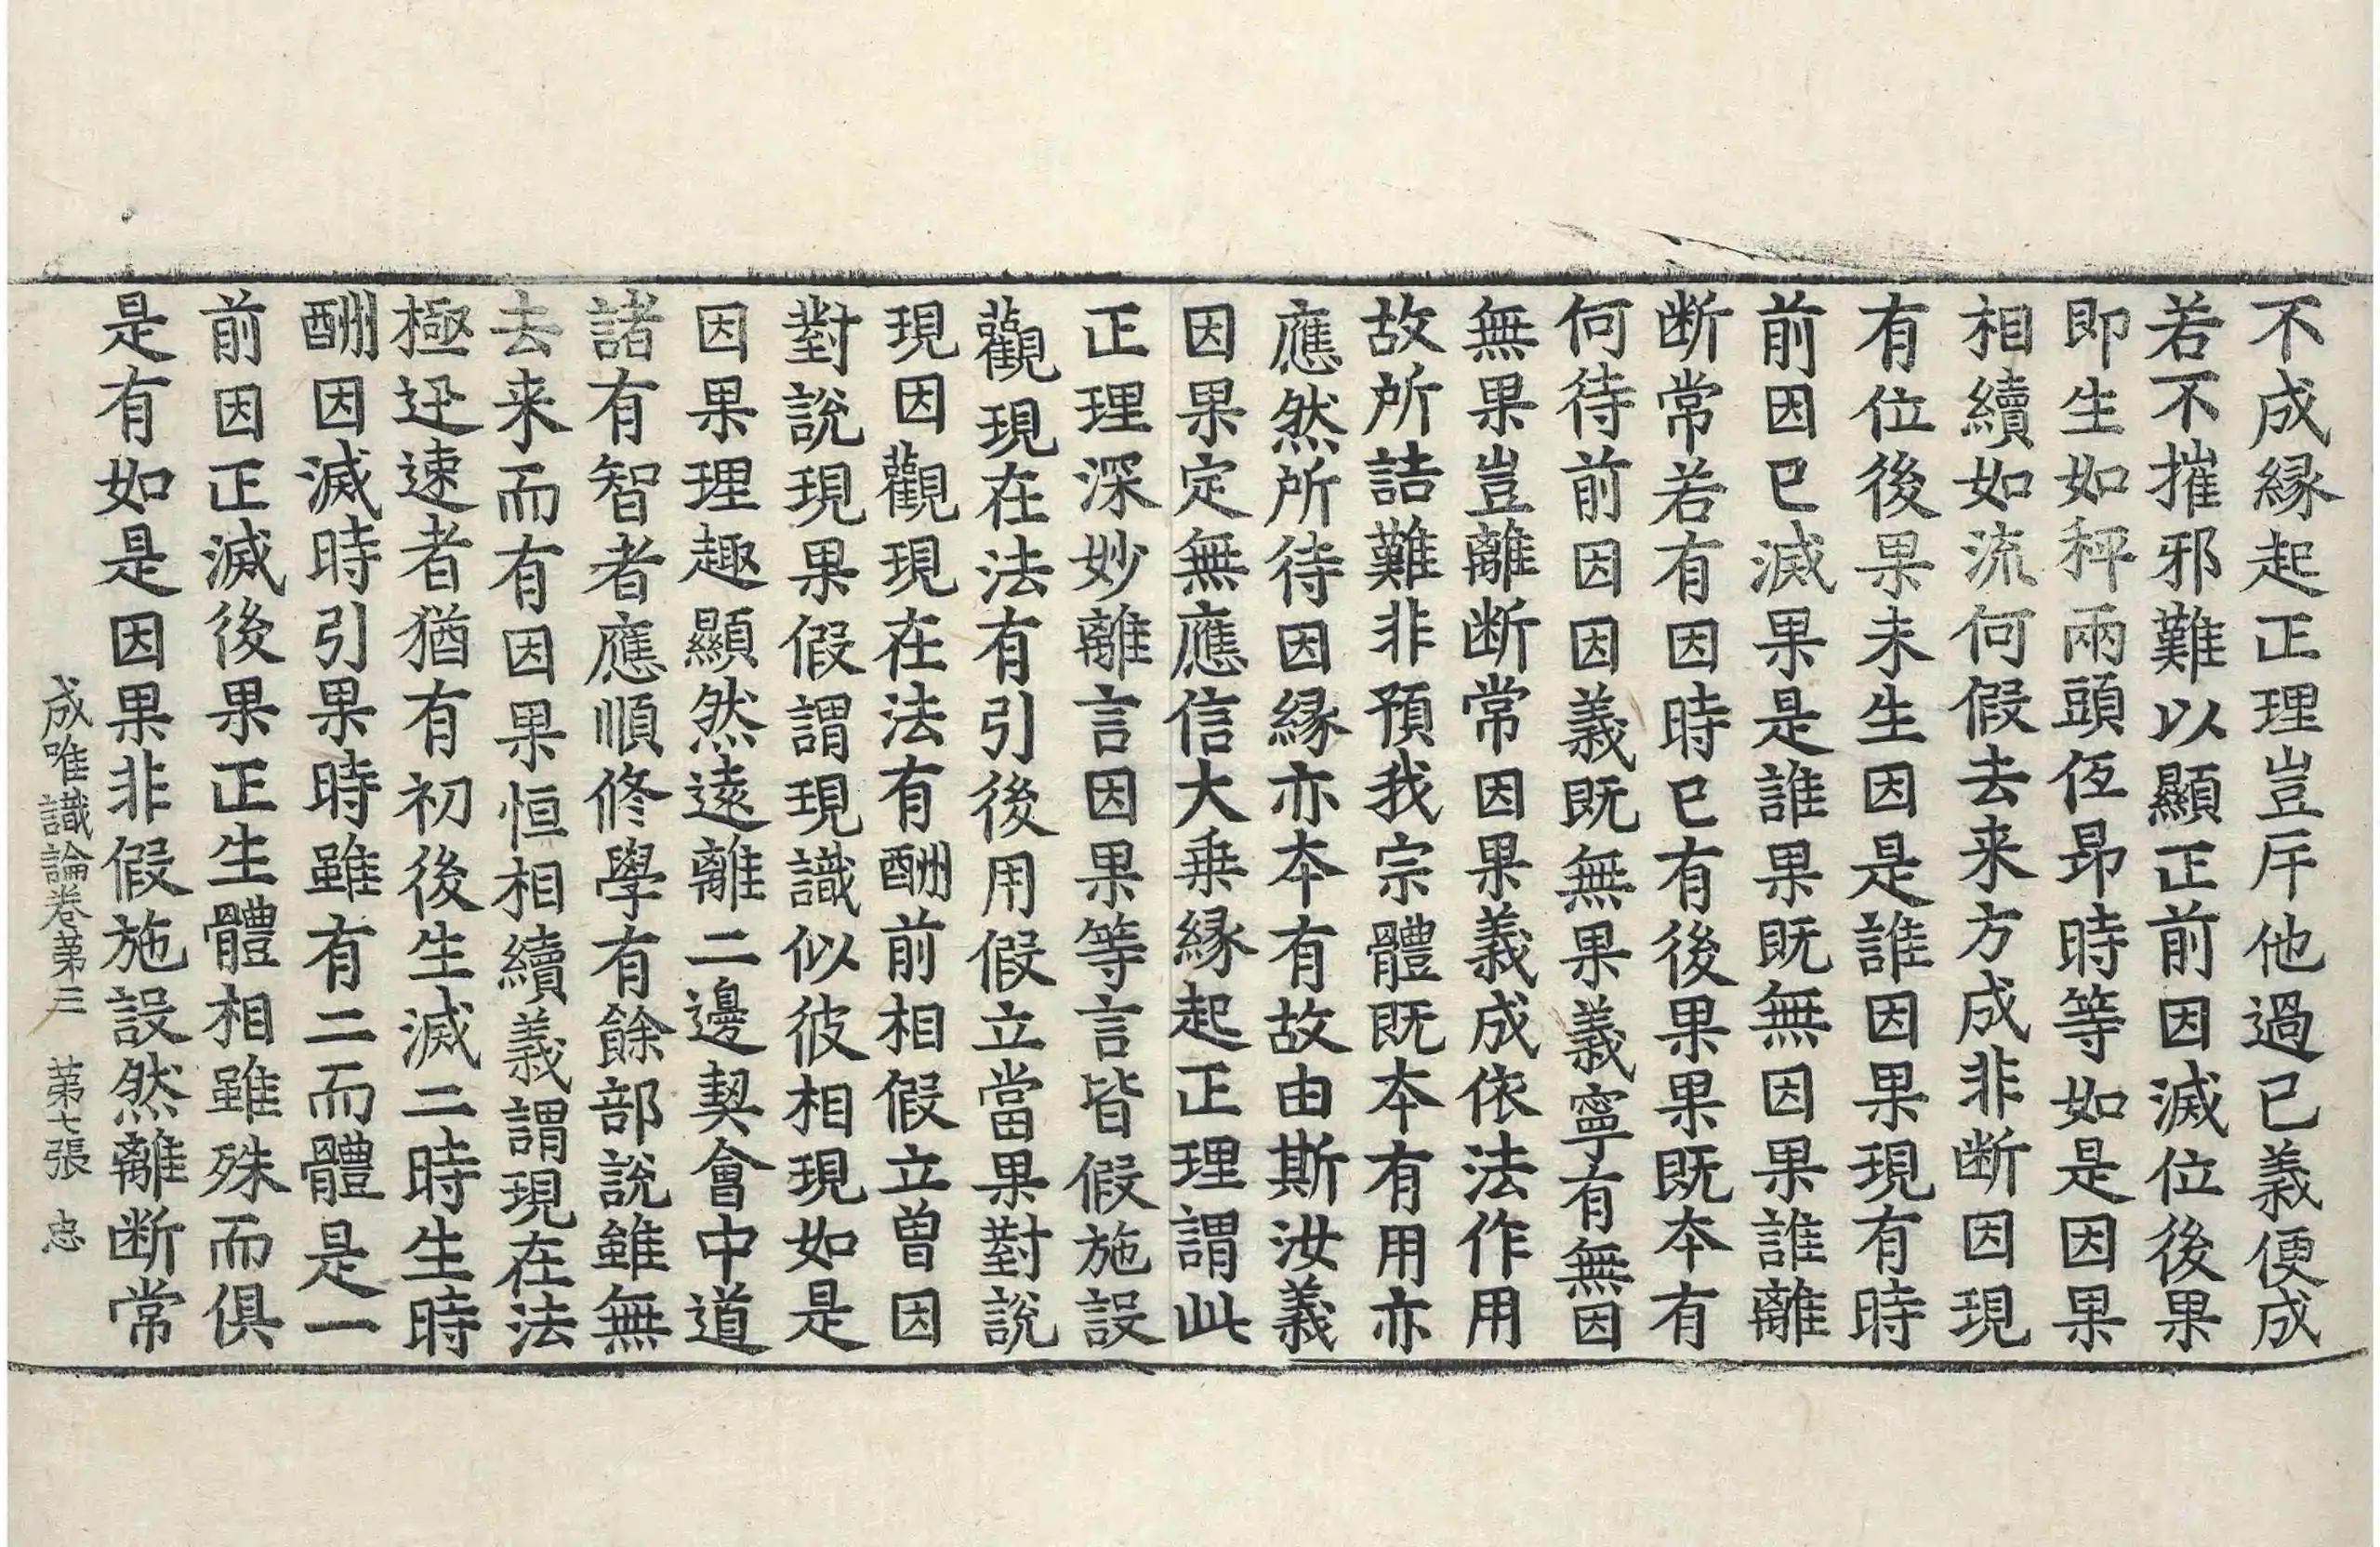 不成縁起正理豈斥他過已義便成
若不摧邪難以顯正前因滅位後果
即生如秤兩頭伍昻時等如是因果
相續如流何假去来方成非断因現
有位後果未生因是誰因果現有時
前因已滅果是誰果既無因果誰離
断常若有因時已有後果果既本有
何待前因因義既無果義寧有無因
無果豈離断常因果義成依法作用
故所詰難非預我宗體既本有用亦
應然所待因縁亦本有故由斯汝義
因果定無應信大乗縁起正理謂此
正理深妙離言因果等言皆假施設
觀現在法有引後用假立當果對說
現因觀現在法有酬前相假立曽因
對說現果假謂現識似彼相現如是
因果理趣顯然遠離二邊契會中道
諸有智者應順修學有餘部說雖無
去来而有因果恒相續義謂現在法
極迅速者猶有初後生滅二時生時
酬因滅時引果時雖有二而體是一
前因正滅後果正生體相雖殊而俱
是有如是因果非假施設然離断常
成唯識論卷第三　第七張　忠